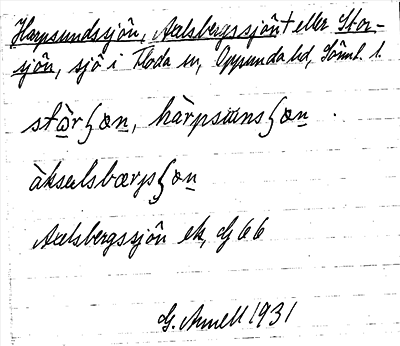 Harpsundssjön, Axelsbergssjön† eller Stor-
sjön, sjö i Floda sn, Oppunda hd, Söml. l.
stàrʃæn, hàrpsunsʃæn.
àksəlsbærjsʃæn
Axelsbergssjön ek, dJ 66
G. Arnell 1931